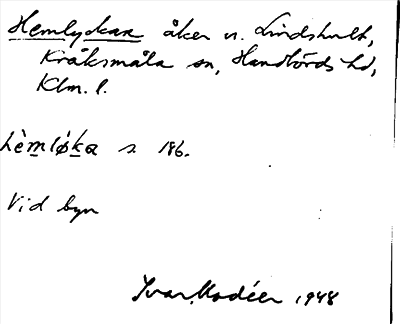 Hemlyckan åker n. Lindshult,
Kråksmåla sn, Handbörds hd,
Klm. l.
hèmlǿka s. 186.
Vid byn
Ivar Modéer 1948